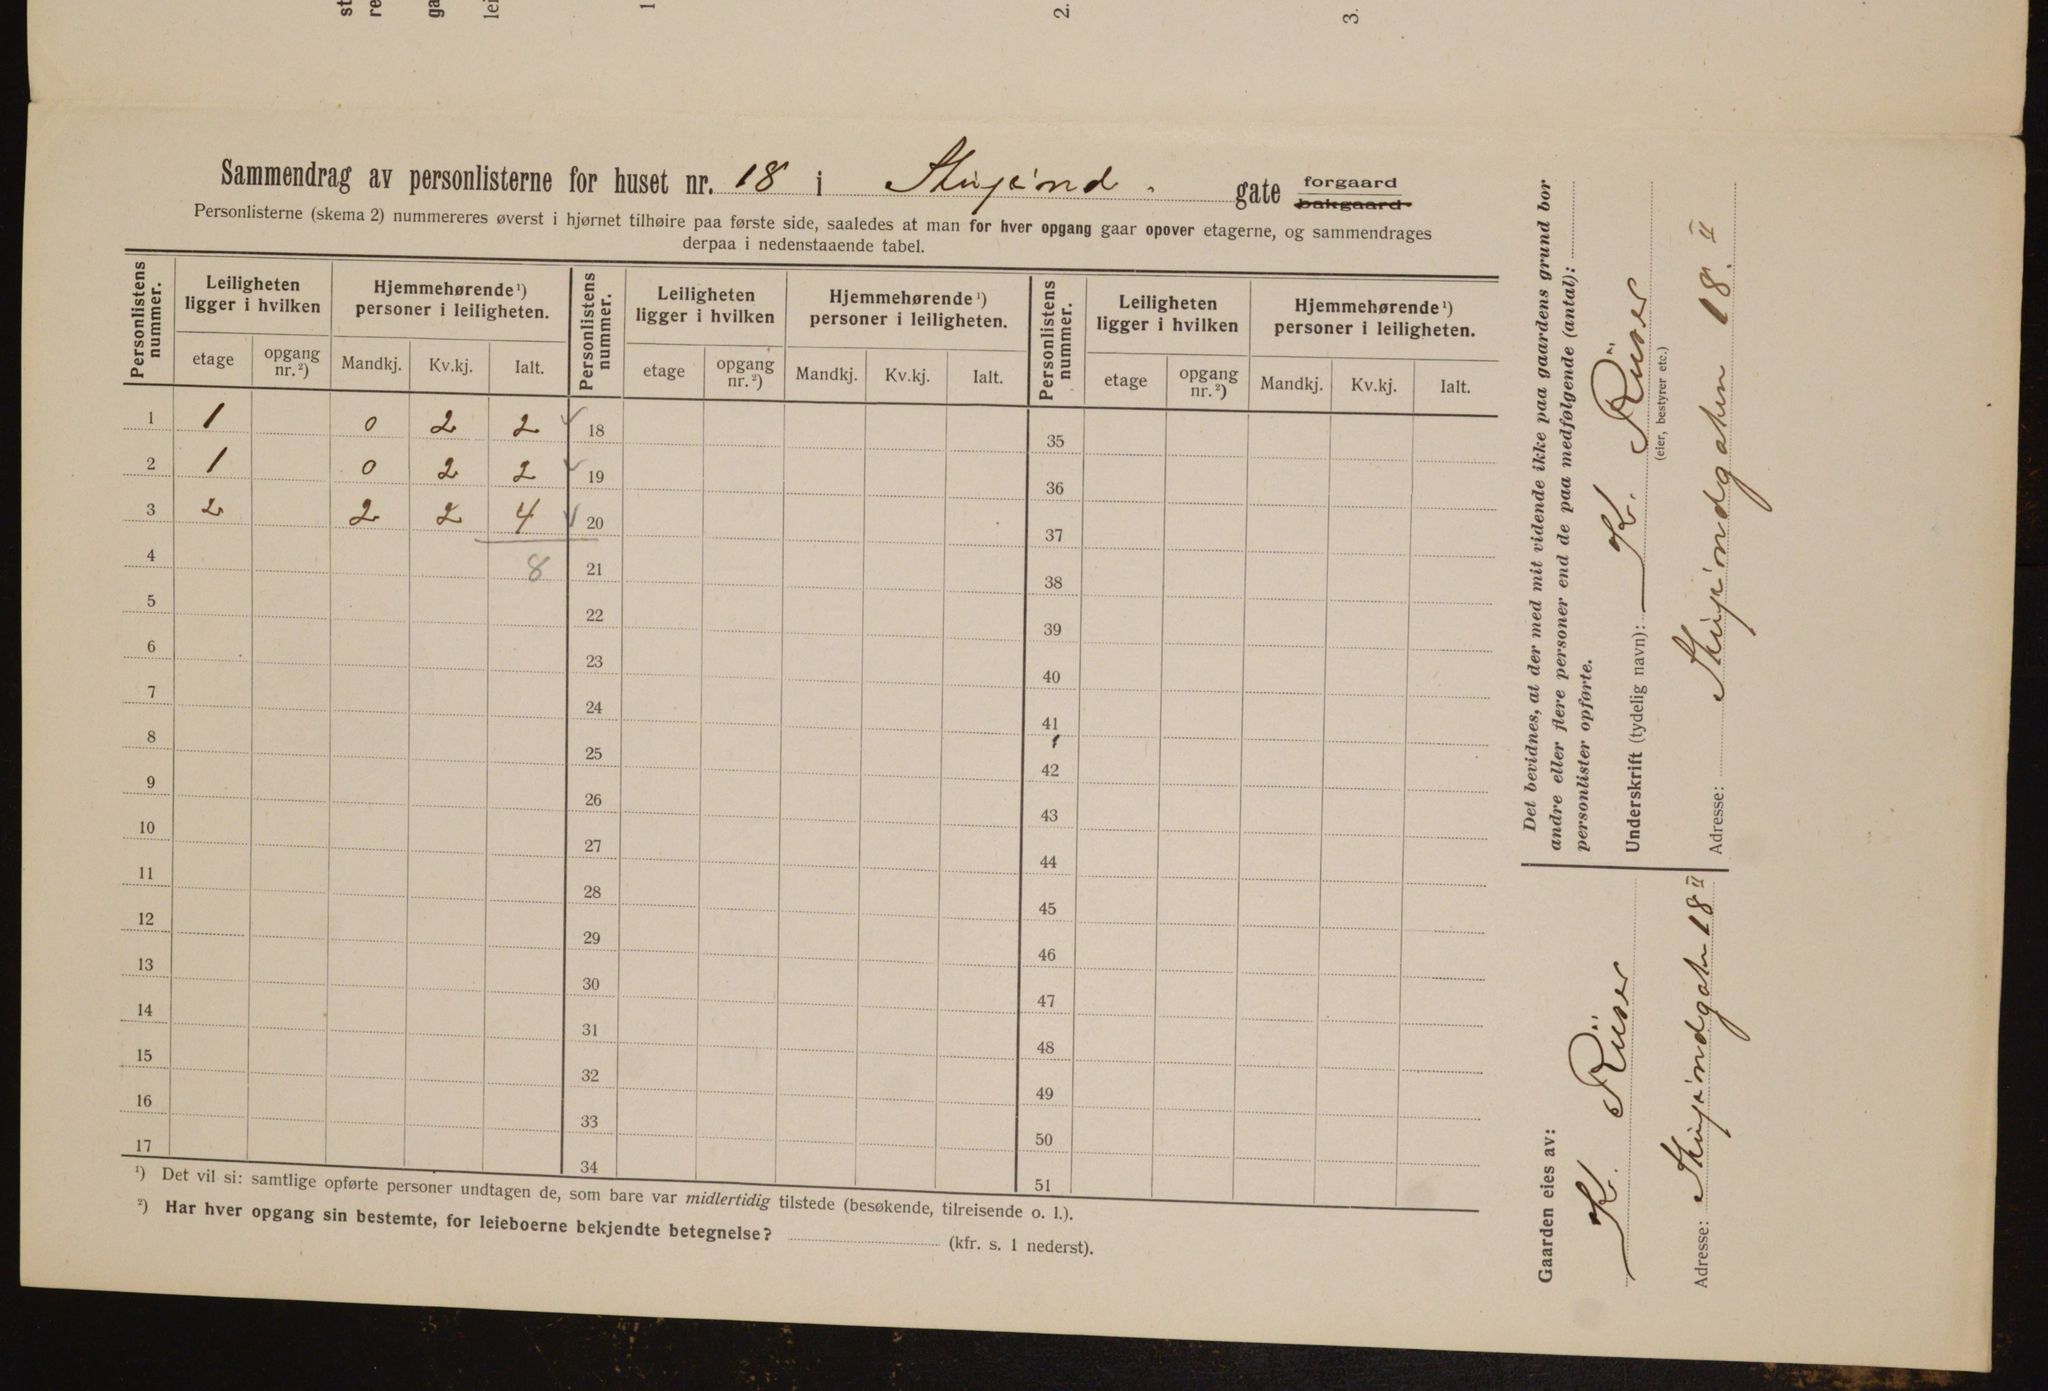 1 2. 3.
Sammendrag av personlisterne for huset nr. 18 i gate forgaard
bakgaard
Personlisterne (skema 2) nummereres øverst i hjørnet tilhøire paa første side, saaledes at man for hver opgang gaar opover etagerne, og sammendrages
derpaa i nedenstaaende tabel.
Personlistens nummer. Leiligheten ligger i hvilken Hjemmehørende ¹) personer i leiligheten. Personlistens nummer. Leiligheten ligger i hvilken Hjemmehørende ¹) personer i leiligheten. Personlistens nummer. Leiligheten ligger i hvilken Hjemmehørende ¹) personer i leiligheten.
etage opgang nr. ²) Mandkj. Kv.kj. Ialt. etage opgang nr. ²) Mandkj. Kv.kj. Ialt. etage opgang nr. ²) Mandkj. Kv.kj. Ialt.
1 1 0 2 2 ✓ 18 35
2 1 0 2 2 ✓ 19 36
3 2 2 2 4 ✓ 20 37
4 8 21 38
5 22 39
6 23 40
7 24 41
8 25 42
9 26 43
10 27 44
11 28 45
12 29 46
13 30 47
14 31 48
15 32 49
16 33 50
17 34 51
¹) Det vil si: samtlige opførte personer undtagen de, som bare var midlertidig tilstede (besøkende, tilreisende o. l.).
²) Har hver opgang sin bestemte, for leieboerne bekjendte betegnelse? (kfr. s. 1 nederst).
Det bevidnes, at der med mit vidende ikke paa gaardens grund bor
andre eller flere personer end de paa medfølgende (antal):
personlister opførte.
Underskrift (tydelig navn): K. Rüser
(eier, bestyrer etc.)
Adresse: 18. II
Gaarden eies av:
K. Rüser
Adresse: 18 II